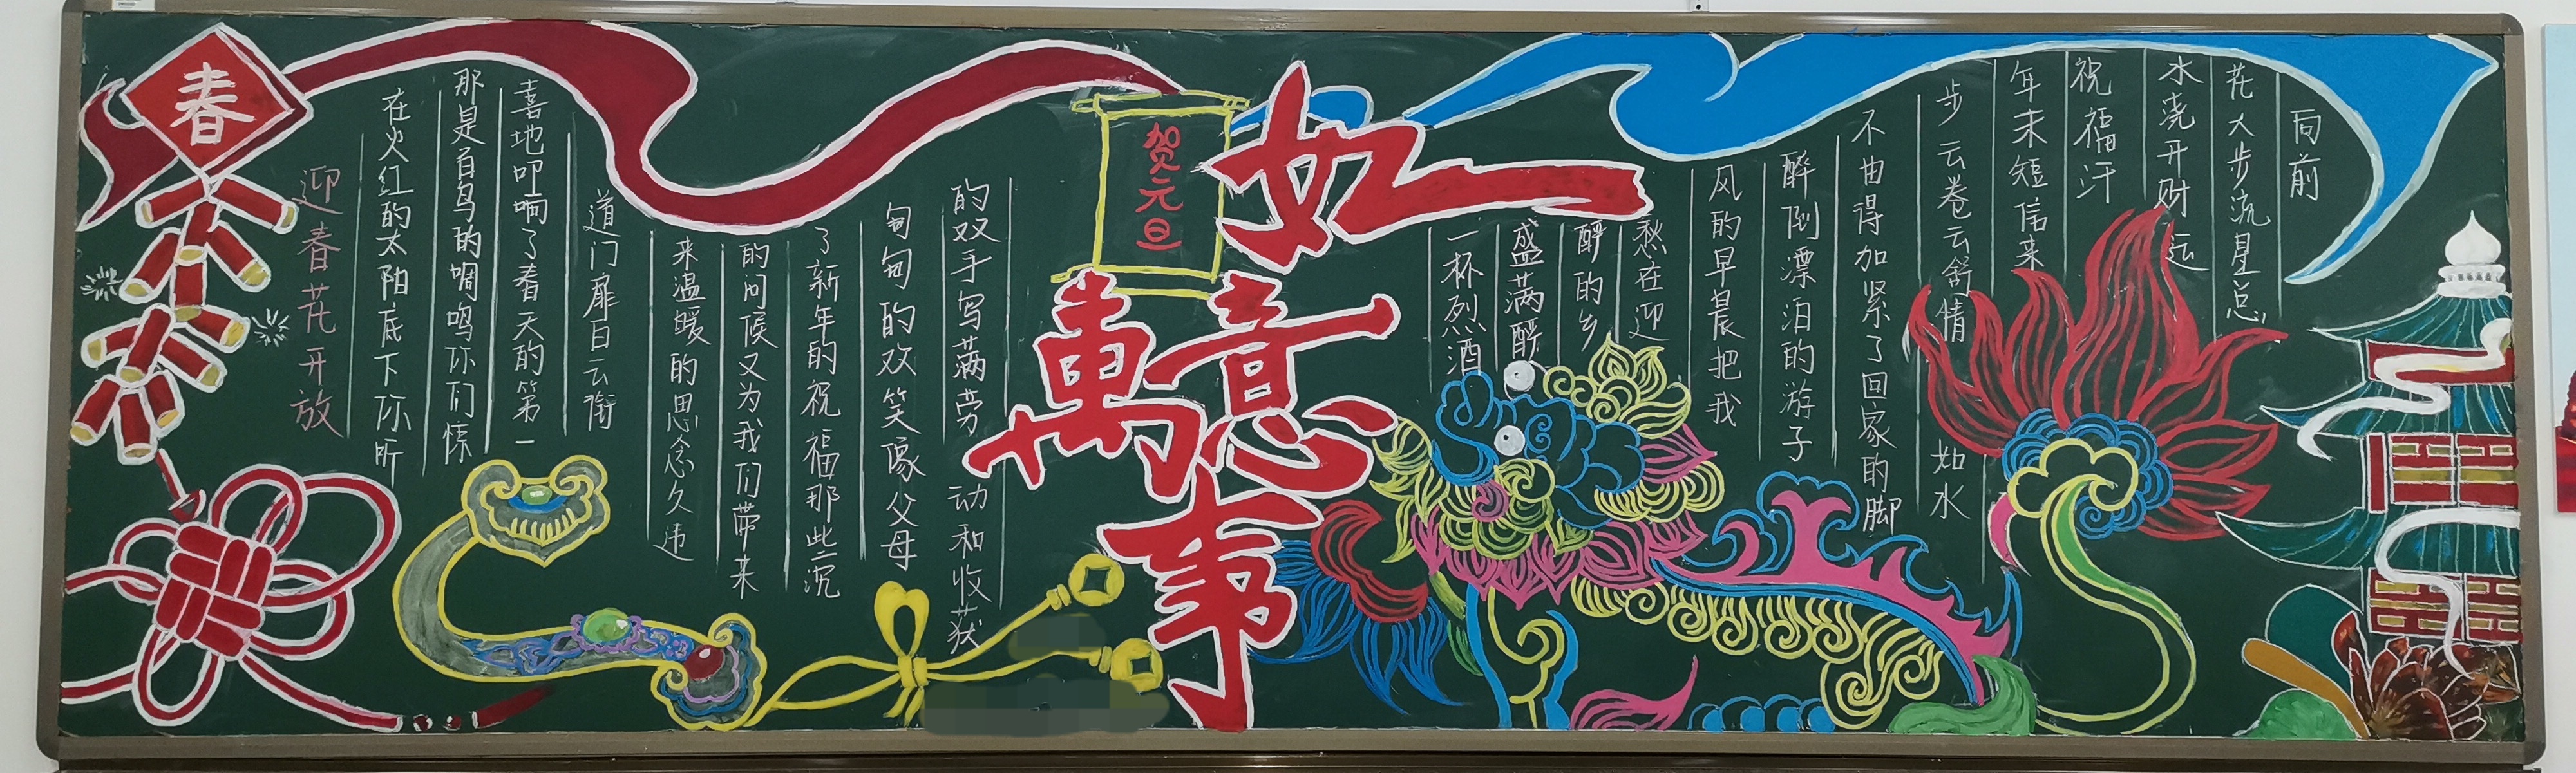 春
迎春花开放
在火红的太阳底下你听
那是百鸟的啁鸣你们
喜地叩响了春天的第一
道门扉白云衔
来温暖的思念久违
的问候又为我们带来
了新年的祝福那些沉
甸甸的欢笑像父母
的双手写满劳动和收获
贺元旦
如意
萬事
一杯烈酒
盛满醉
醉的乡
愁在迎
风的早晨把我
醉倒漂泊的游子
不由得加紧了回家的脚
步云卷云舒情如水
年末短信来
祝福汗
水浇开财运
花大步流星总
向前